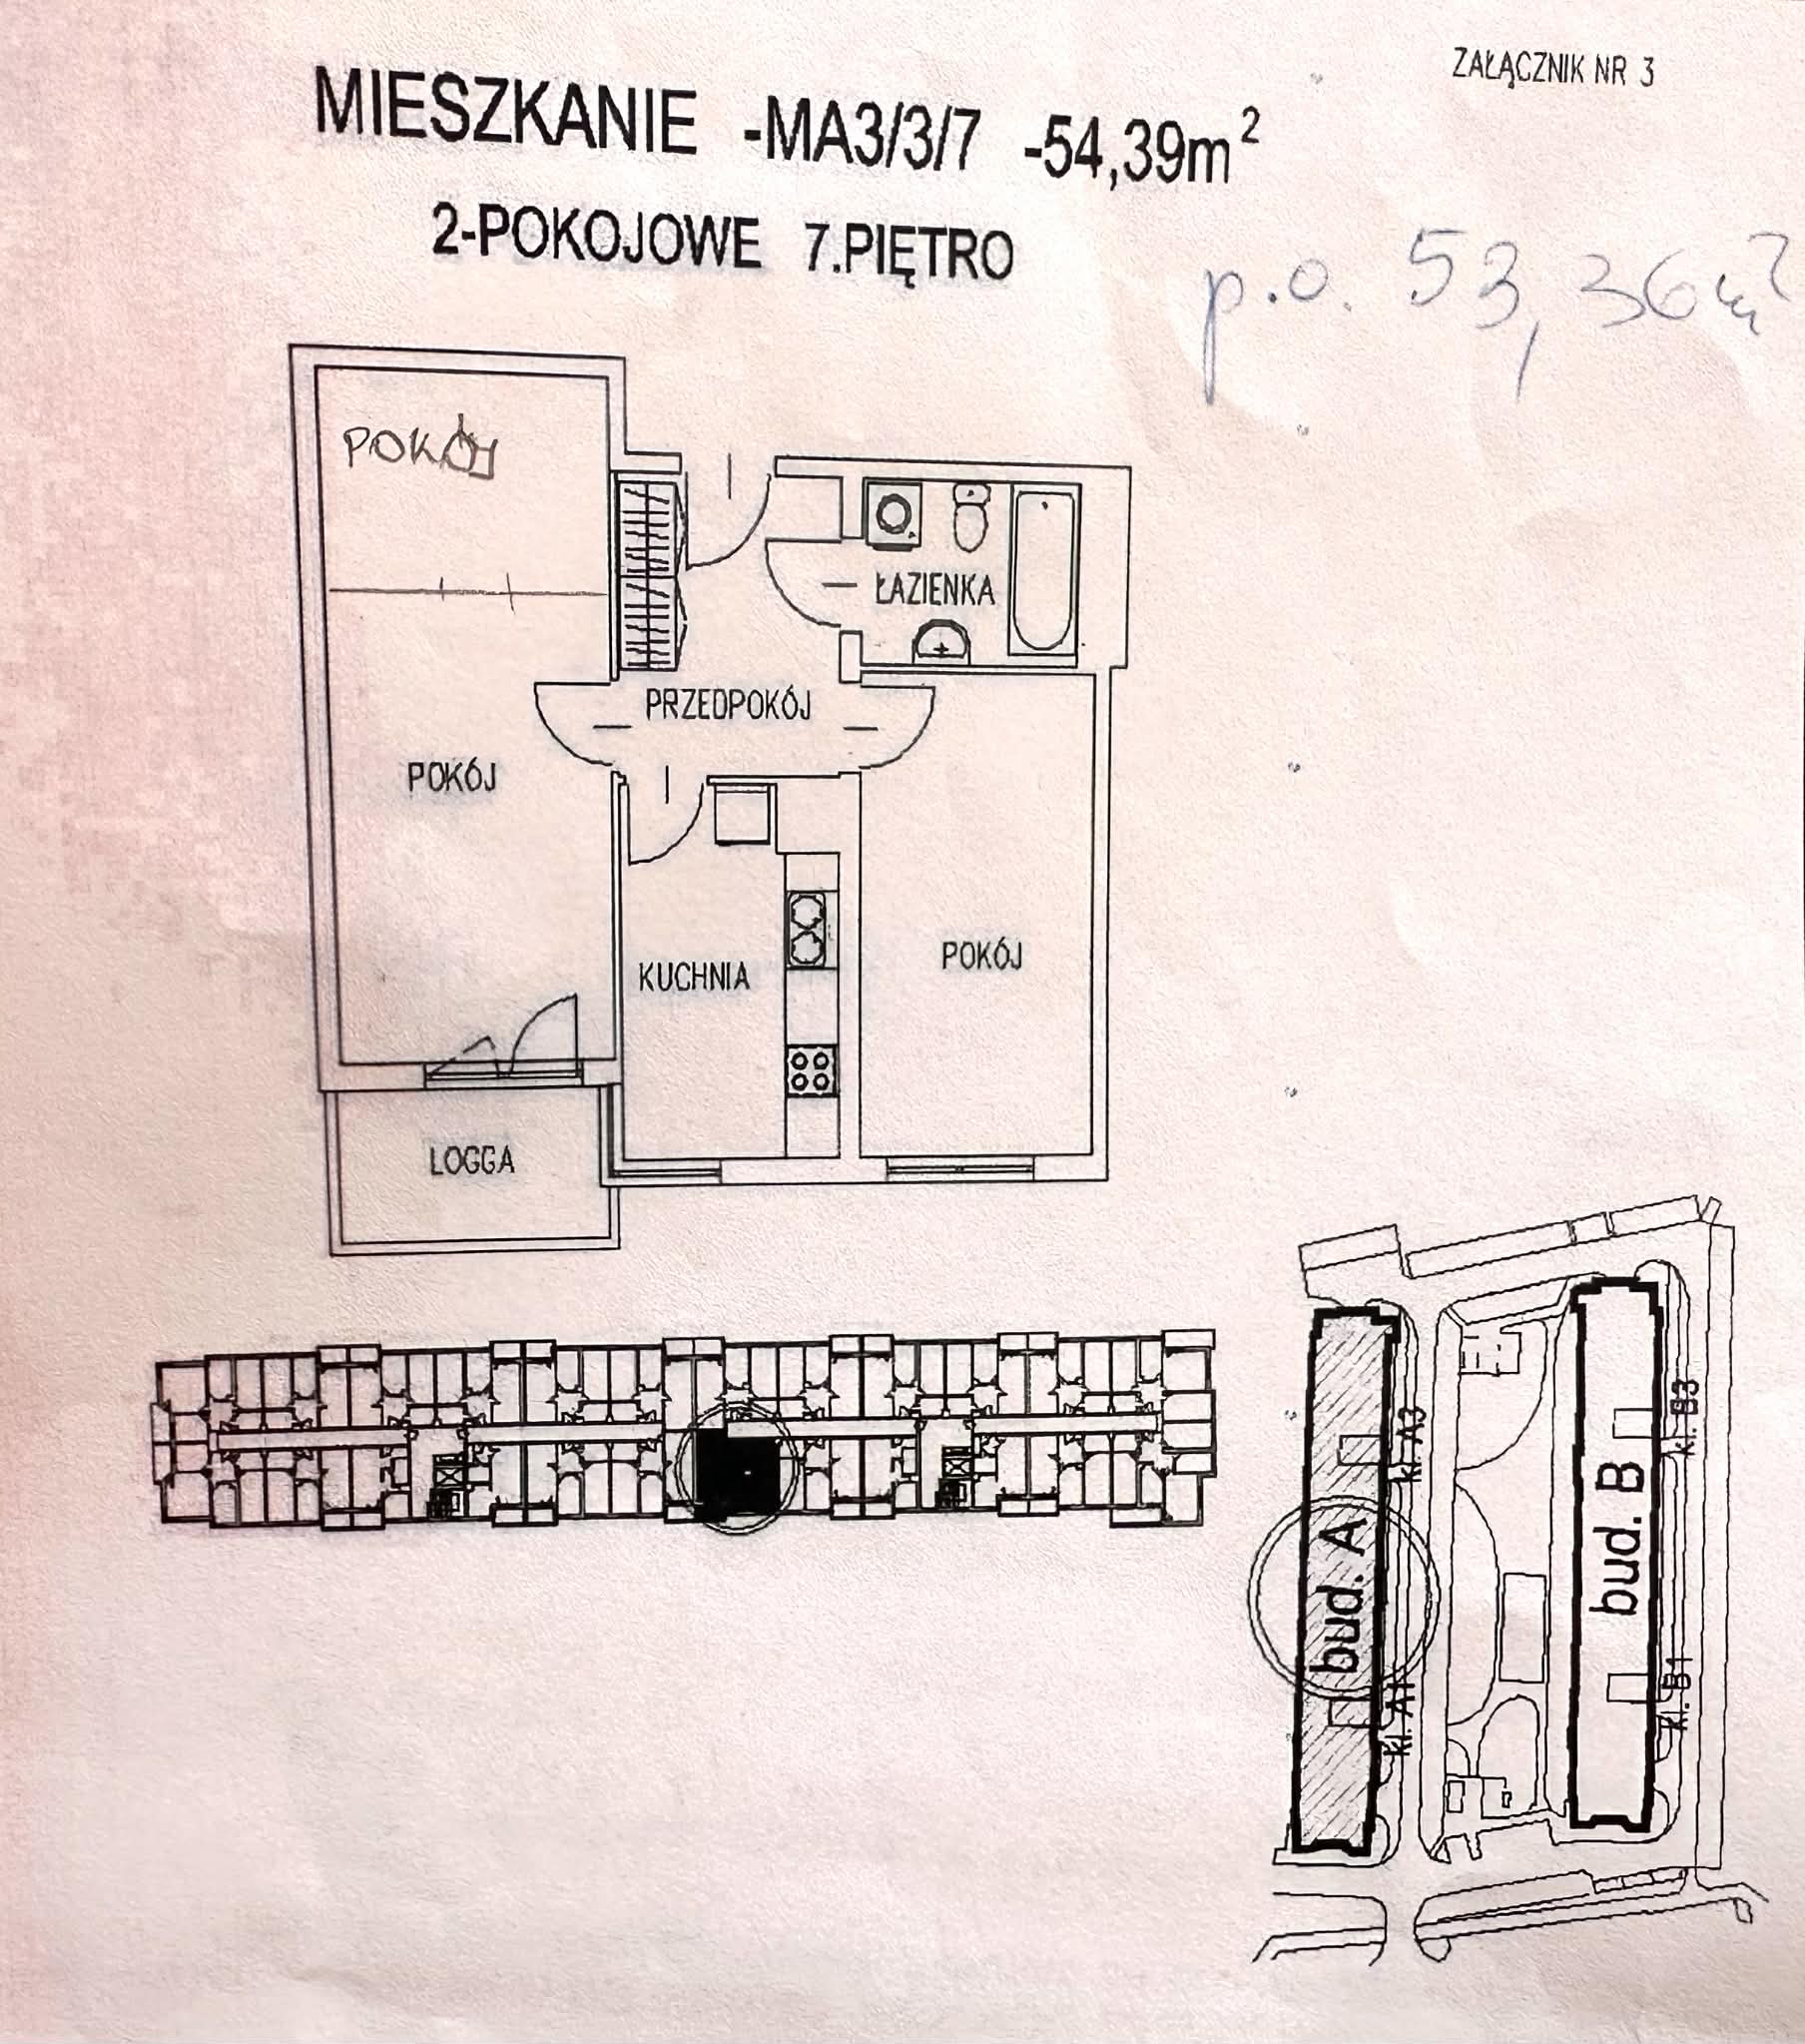 ZAŁĄCZNIK NR 3
MIESZKANIE -MA3/3/7 -54,39m²
2-POKOJOWE 7.PIĘTRO
p.o. 53,36m²
POKÓJ
ŁAZIENKA
PRZEDPOKÓJ
POKÓJ
KUCHNIA
POKÓJ
LOGGA
bud. A
kl. A3
kl. A1
bud. B
kl. B3
kl. B1